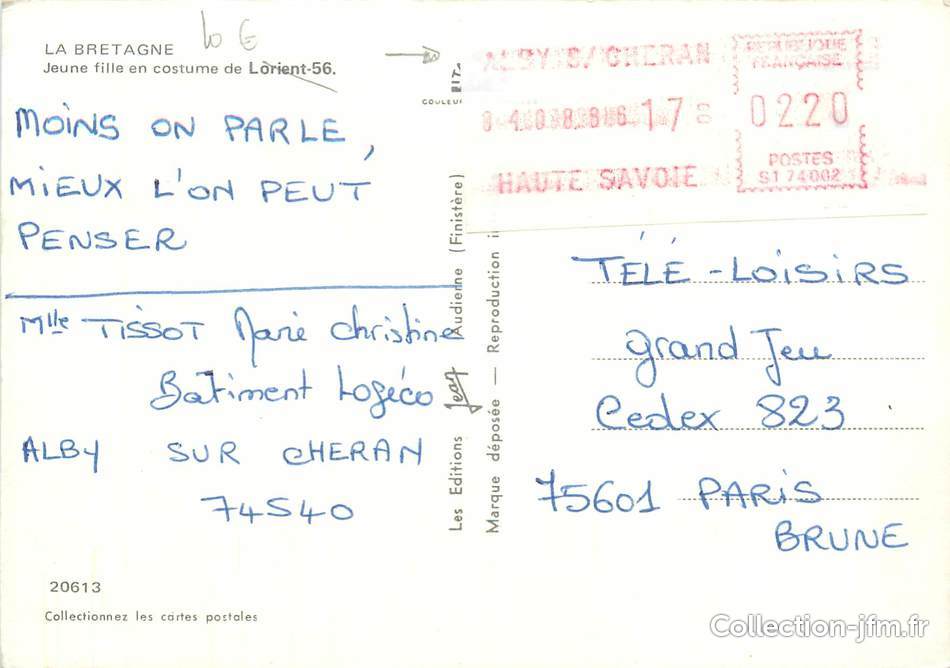 LA BRETAGNE
Jeune fille en costume de Lorient-56.
10 €
COULEU
MOINS ON PARLE,
MIEUX L'ON PEUT
PENSER
Mlle TISSOT Marie Christine
Batiment Logéco
ALBY SUR CHERAN
74540
20613
Collectionnez les cartes postales
Les Editions Jean Audienne (Finistère)
Marque déposée — Reproduction in
ALBY S/CHERAN
04.08.86 17
HAUTE SAVOIE
REPUBLIQUE
FRANÇAISE
0220
POSTES
S1 74002
TÉLÉ-LOISIRS
Grand Jeu
Cedex 823
75601 PARIS
BRUNE
Collection-jfm.fr